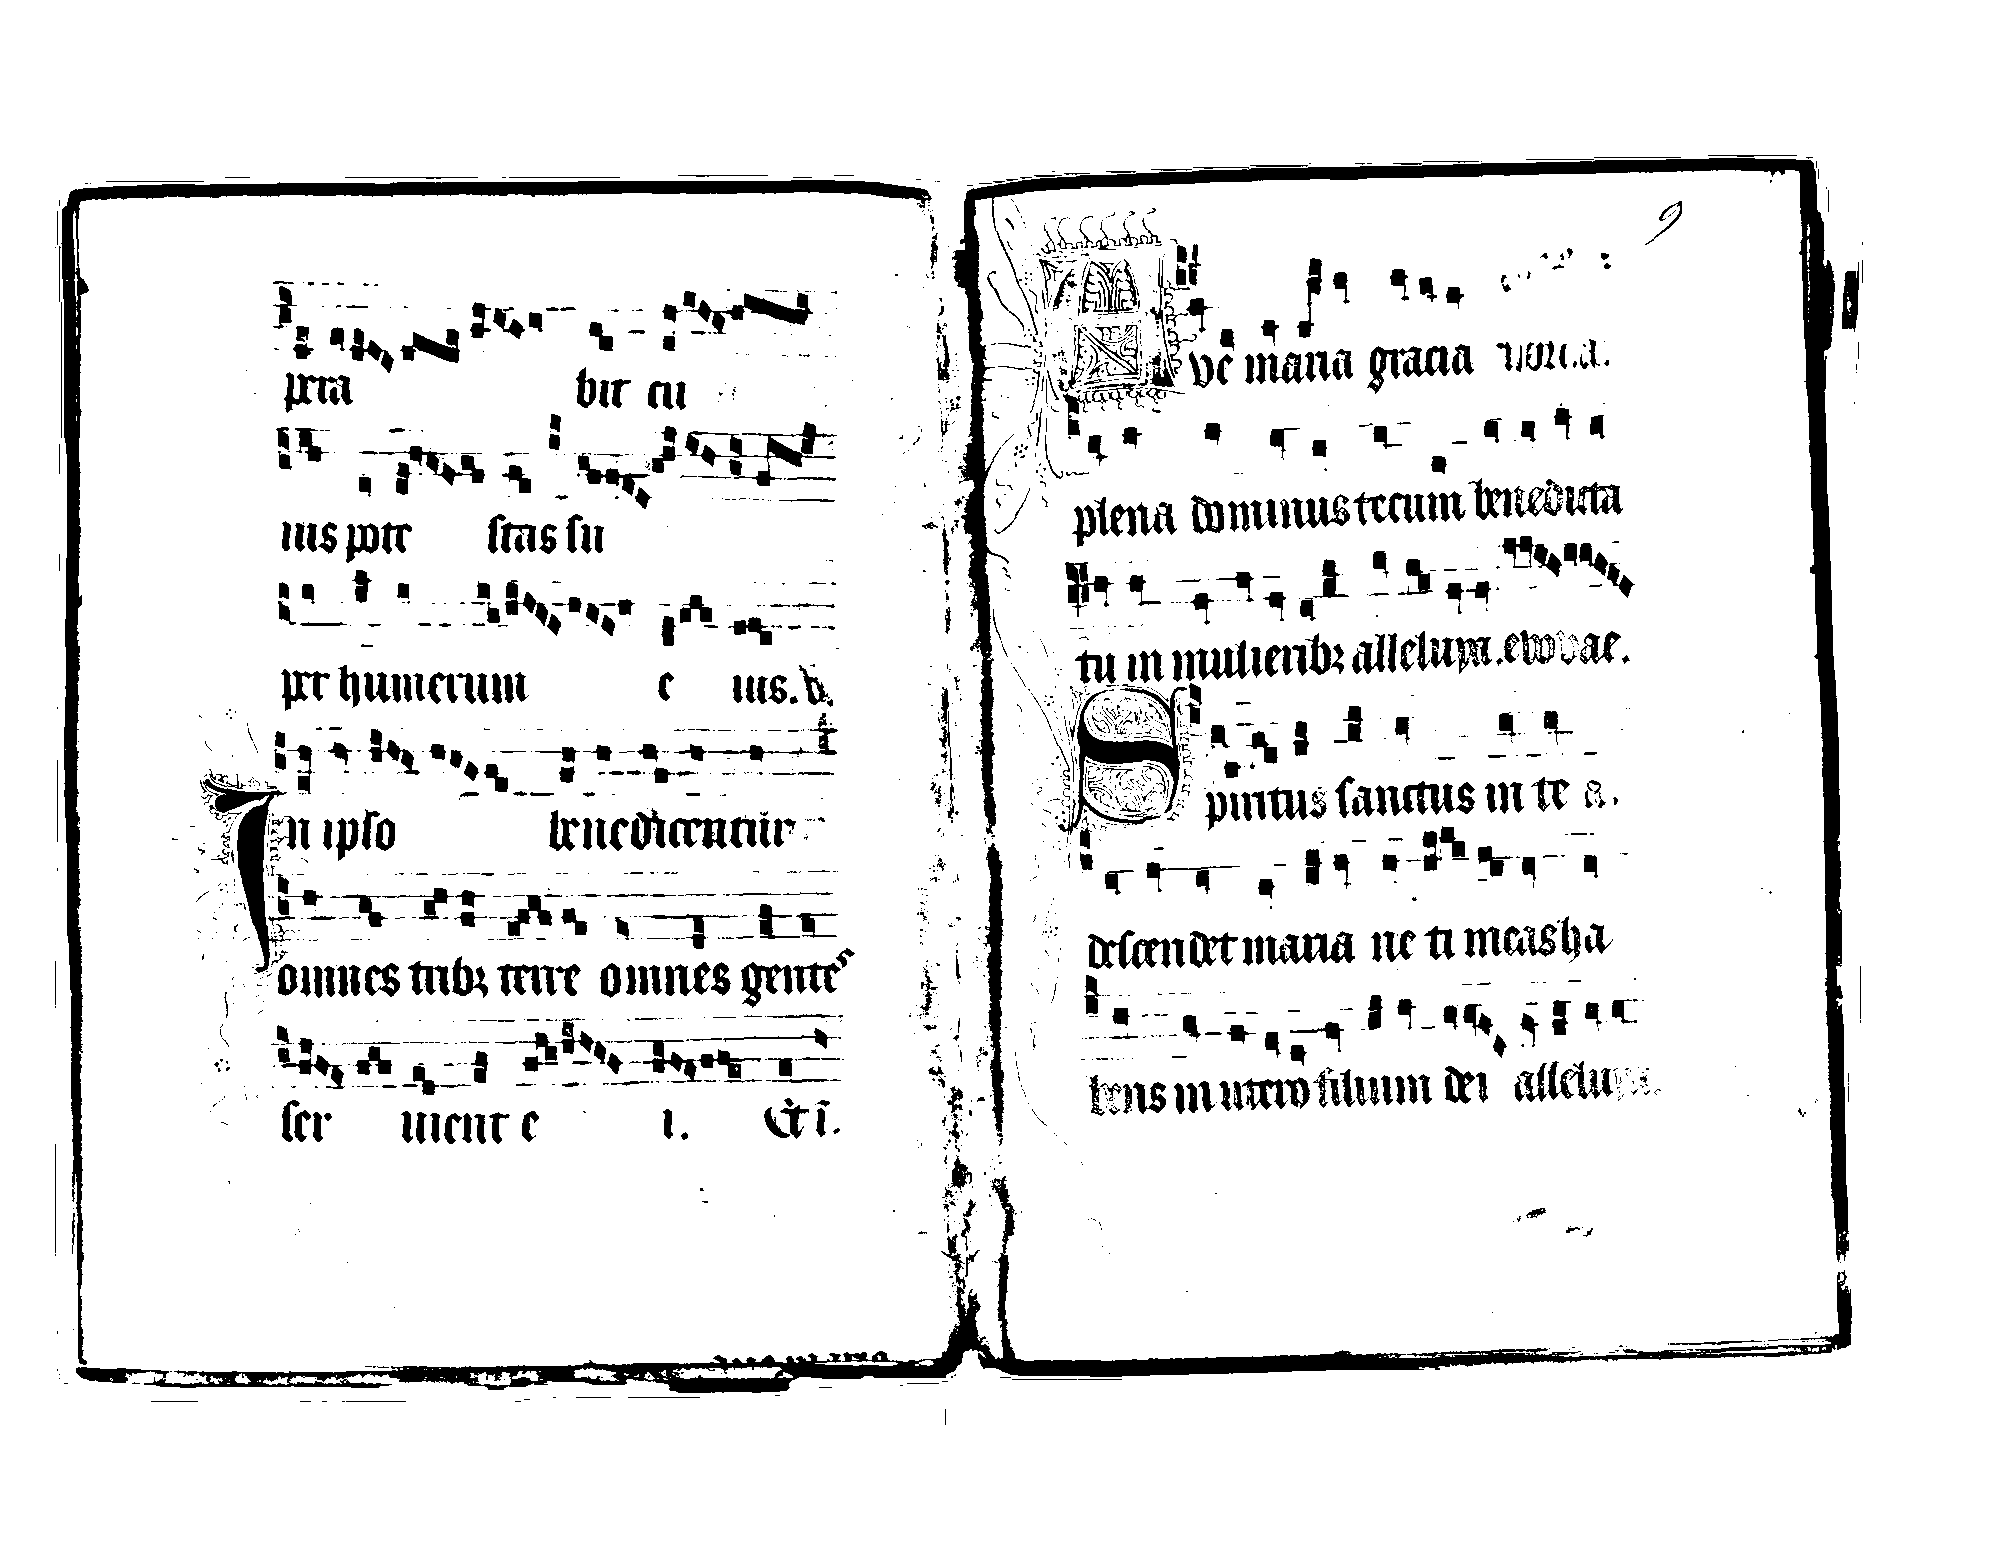 petra bit eu
ius pote stas su
per humerum e ius. V.
In ipso benedicentur
omnes tribꝫ terre omnes gentes
ser uient e i. Et i.
9
Ave maria gracia
plena dominus tecum benedicta
tu in mulieribꝫ alleluya. evovae.
Spiritus sanctus in te a.
descendet maria ne ti meas ha
bens in utero filium dei alleluya.